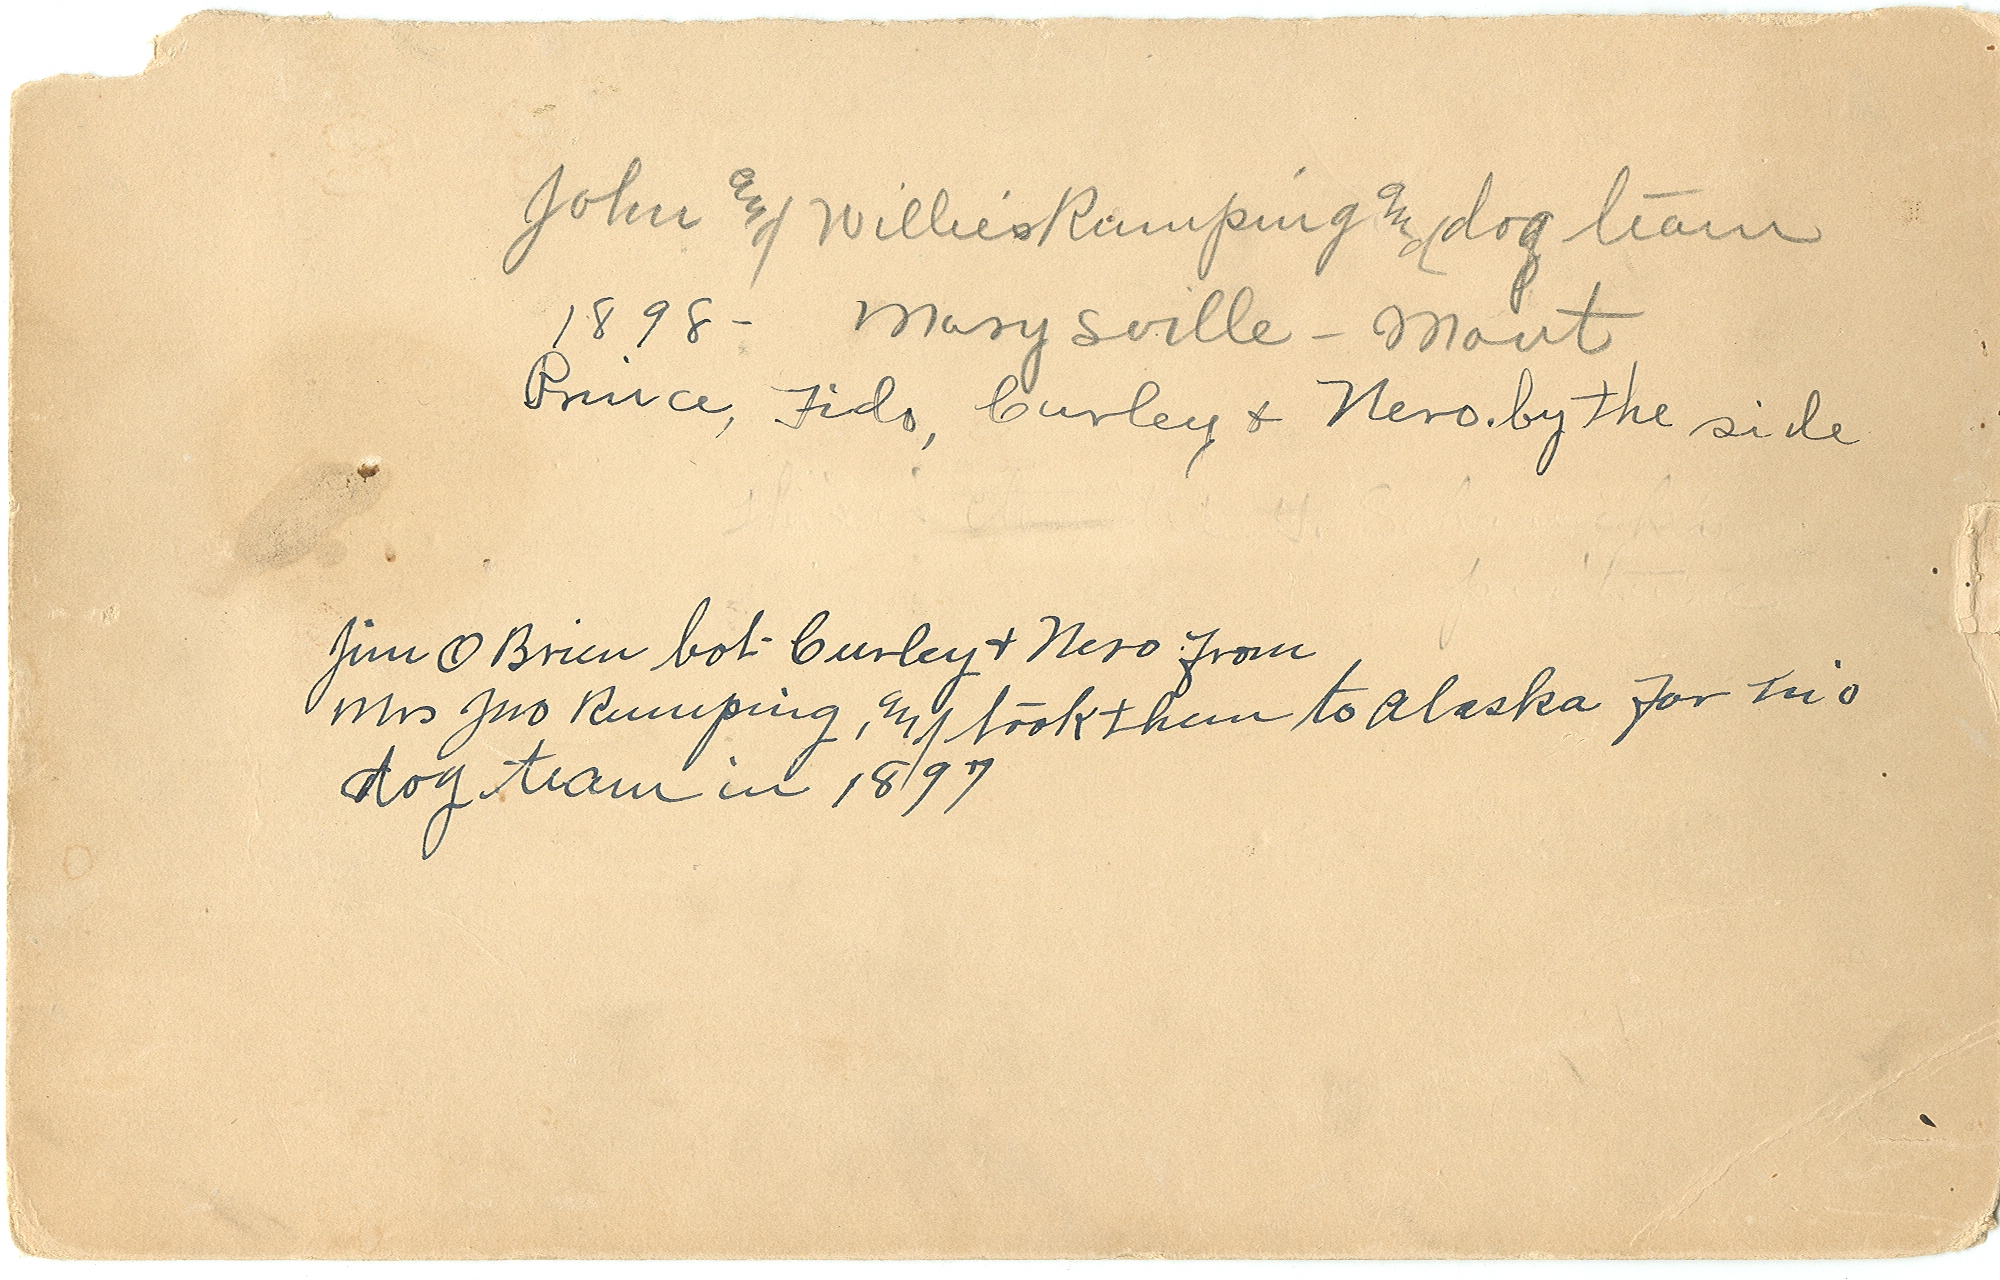 John and Willie's Rumping and dog team
1898 - Marysville - Mont
Prince, Fido, Curley & Nero. by the side
Jim O Brien bot Curley & Nero from
Mrs Jno Rumping, and took them to Alaska for his
dog team in 1897